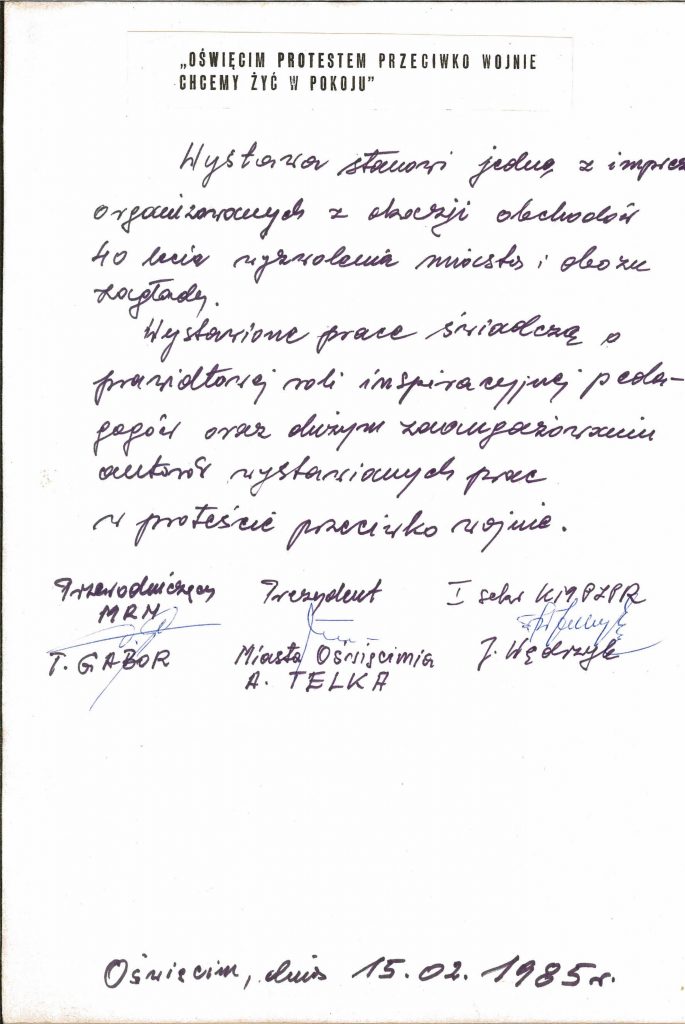 „OŚWIĘCIM PROTESTEM PRZECIWKO WOJNIE
CHCEMY ŻYĆ W POKOJU”
Wystawa stanowi jedną z imprez
organizowanych z okazji obchodów
40 lecia wyzwolenia miasta i obozu
zagłady.
Wystawione prace świadczą o
prawidłowej roli inspiracyjnej peda-
gogów oraz dużym zaangażowaniu
autorów wystawianych prac
w proteście przeciwko wojnie.
Przewodniczący Prezydent I sekr KMPZPR
MRN
T. GABOR Miasta Oświęcimia J. Wędrzyk
A. TELKA
Oświęcim, dnia 15.02.1985r.